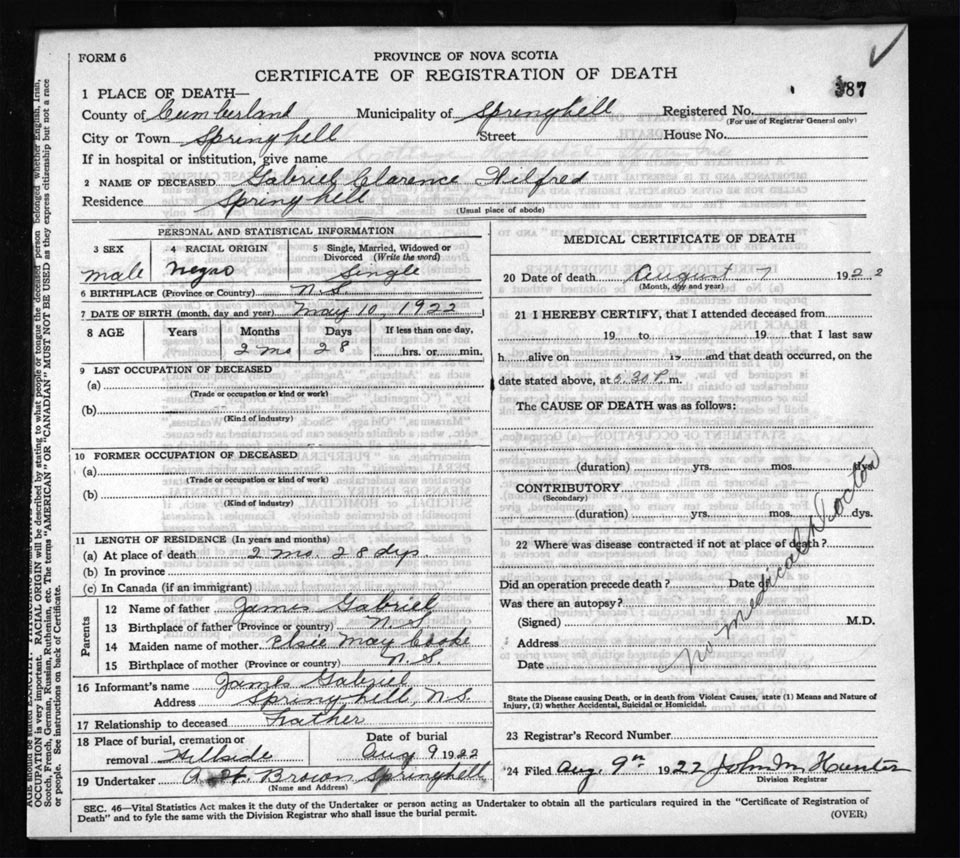 FORM 6
387
PROVINCE OF NOVA SCOTIA
CERTIFICATE OF REGISTRATION OF DEATH
1 PLACE OF DEATH—
County of Cumberland Municipality of Springhell Registered No.
(For use of Registrar General only)
City or Town Springhell Street House No.
If in hospital or institution, give name
2 NAME OF DECEASED Gabriel Clarence Wilfred
Residence Springhell
(Usual place of abode)
PERSONAL AND STATISTICAL INFORMATION
3 SEX 4 RACIAL ORIGIN 5 Single, Married, Widowed or
Divorced (Write the word)
male negro Single
6 BIRTHPLACE (Province or Country) N.S.
7 DATE OF BIRTH (month, day and year) May 10, 1922
8 AGE Years Months Days If less than one day,
2 mo 28 hrs. or min.
9 LAST OCCUPATION OF DECEASED
(a)
(Trade or occupation or kind of work)
(b)
(Kind of industry)
10 FORMER OCCUPATION OF DECEASED
(a)
(Trade or occupation or kind of work)
(b)
(Kind of industry)
11 LENGTH OF RESIDENCE (In years and months)
(a) At place of death 2 mo. 28 dys.
(b) In province
(c) In Canada (if an immigrant)
Parents
12 Name of father James Gabriel
13 Birthplace of father (Province or country) N.S
14 Maiden name of mother Elsie May Cooke
15 Birthplace of mother (Province or country) N.S.
16 Informant's name James Gabriel
Address Springhell, N.S.
17 Relationship to deceased Father
18 Place of burial, cremation or Date of burial
removal Hillside Aug 9 1922
19 Undertaker Brown Springhell
(Name and Address)
MEDICAL CERTIFICATE OF DEATH
20 Date of death August 7 1922
(Month, day and year)
21 I HEREBY CERTIFY, that I attended deceased from
19 to 19 that I last saw
h alive on 19 and that death occurred, on the
date stated above, at 5.30 P. m.
The CAUSE OF DEATH was as follows:
(duration) yrs. mos. dys.
CONTRIBUTORY
(Secondary)
(duration) yrs. mos. dys.
22 Where was disease contracted if not at place of death?
Did an operation precede death? Date of
Was there an autopsy?
(Signed) M.D.
Address
Date
No medical Doctor
State the Disease causing Death, or in death from Violent Causes, state (1) Means and Nature of
Injury, (2) whether Accidental, Suicidal or Homicidal.
23 Registrar's Record Number
24 Filed Aug. 9th 1922 John M. Hunter
Division Registrar
SEC. 46—Vital Statistics Act makes it the duty of the Undertaker or person acting as Undertaker to obtain all the particulars required in the "Certificate of Registration of
Death" and to fyle the same with the Division Registrar who shall issue the burial permit.
(OVER)
OCCUPATION is very important. RACIAL ORIGIN will be described by stating to what people or tongue the deceased person belonged whether English, Irish,
Scotch, French, German, Russian, Ruthenian, etc. The terms "AMERICAN" OR "CANADIAN" MUST NOT BE USED as they express citizenship but not a race
or people. See instructions on back of Certificate.